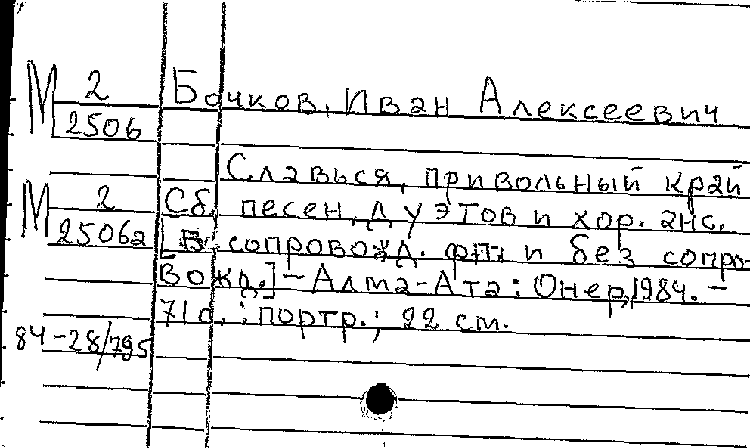 М 2 Бочков, Иван Алексеевич
2506
Славься, привольный край
М 2 Сб. песен, дуэтов и хор. анс.
2506а [В сопровожд. фп. и без сопро-
вожд.] - Алма-Ата: Онер, 1984. -
71 с.: портр.; 22 см.
84-28/795